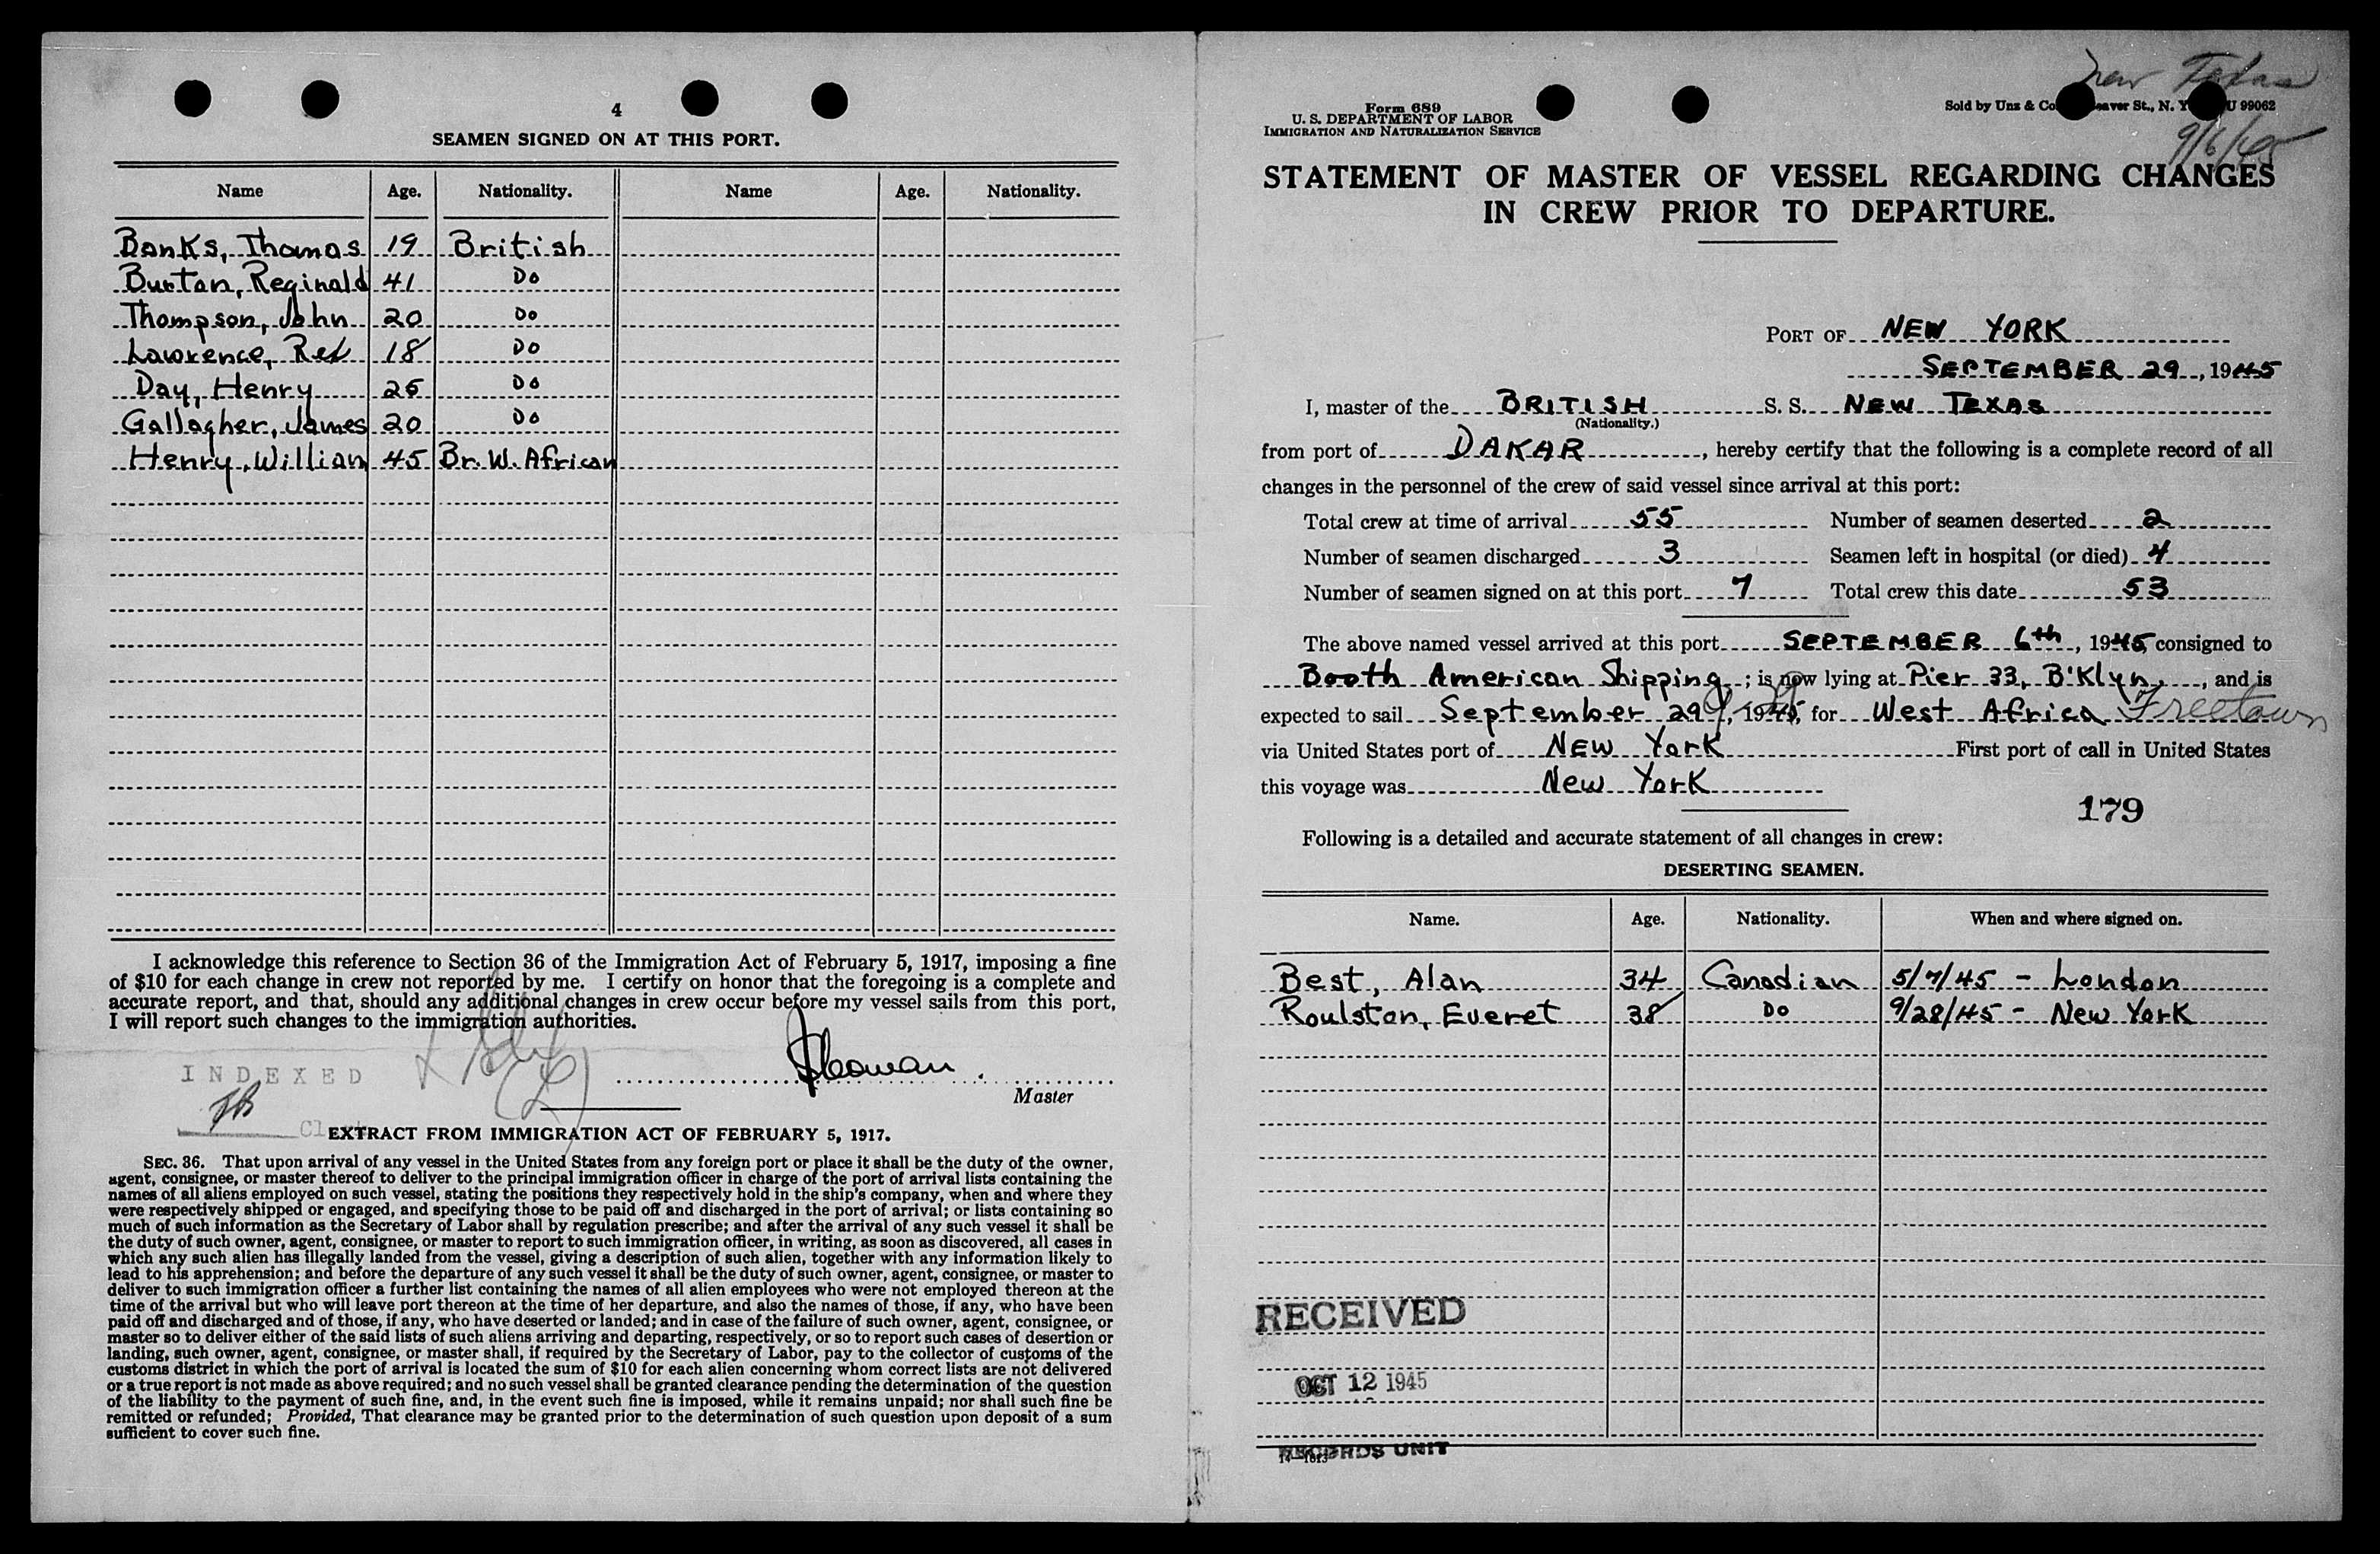 4
SEAMEN SIGNED ON AT THIS PORT.
Name Age. Nationality. Name Age. Nationality.
Banks, Thomas 19 British
Burton, Reginald 41 Do
Thompson, John 20 Do
Lawrence, 18 Do
Day, Henry 25 Do
Gallagher, James 20 Do
Henry, William 45 Br. W. African
I acknowledge this reference to Section 36 of the Immigration Act of February 5, 1917, imposing a fine
of $10 for each change in crew not reported by me. I certify on honor that the foregoing is a complete and
accurate report, and that, should any additional changes in crew occur before my vessel sails from this port,
I will report such changes to the immigration authorities.
INDEXED
Master
EXTRACT FROM IMMIGRATION ACT OF FEBRUARY 5, 1917.
SEC. 36. That upon arrival of any vessel in the United States from any foreign port or place it shall be the duty of the owner,
agent, consignee, or master thereof to deliver to the principal immigration officer in charge of the port of arrival lists containing the
names of all aliens employed on such vessel, stating the positions they respectively hold in the ship's company, when and where they
were respectively shipped or engaged, and specifying those to be paid off and discharged in the port of arrival; or lists containing so
much of such information as the Secretary of Labor shall by regulation prescribe; and after the arrival of any such vessel it shall be
the duty of such owner, agent, consignee, or master to report to such immigration officer, in writing, as soon as discovered, all cases in
which any such alien has illegally landed from the vessel, giving a description of such alien, together with any information likely to
lead to his apprehension; and before the departure of any such vessel it shall be the duty of such owner, agent, consignee, or master to
deliver to such immigration officer a further list containing the names of all alien employees who were not employed thereon at the
time of the arrival but who will leave port thereon at the time of her departure, and also the names of those, if any, who have been
paid off and discharged and of those, if any, who have deserted or landed; and in case of the failure of such owner, agent, consignee, or
master so to deliver either of the said lists of such aliens arriving and departing, respectively, or so to report such cases of desertion or
landing, such owner, agent, consignee, or master shall, if required by the Secretary of Labor, pay to the collector of customs of the
customs district in which the port of arrival is located the sum of $10 for each alien concerning whom correct lists are not delivered
or a true report is not made as above required; and no such vessel shall be granted clearance pending the determination of the question
of the liability to the payment of such fine, and, in the event such fine is imposed, while it remains unpaid; nor shall such fine be
remitted or refunded; Provided, That clearance may be granted prior to the determination of such question upon deposit of a sum
sufficient to cover such fine.
New Texas
Form 689
U. S. DEPARTMENT OF LABOR
IMMIGRATION AND NATURALIZATION SERVICE
Sold by Unz & Co. St., N. Y. U 99062
9/6/45
STATEMENT OF MASTER OF VESSEL REGARDING CHANGES
IN CREW PRIOR TO DEPARTURE.
PORT OF NEW YORK
SEPTEMBER 29, 1945
I, master of the BRITISH S. S. NEW TEXAS
(Nationality.)
from port of DAKAR, hereby certify that the following is a complete record of all
changes in the personnel of the crew of said vessel since arrival at this port:
Total crew at time of arrival 55 Number of seamen deserted 2
Number of seamen discharged 3 Seamen left in hospital (or died) 4
Number of seamen signed on at this port 7 Total crew this date 53
The above named vessel arrived at this port SEPTEMBER 6th, 1945, consigned to
Booth American Shipping; is now lying at Pier 33, B'Klyn., and is
expected to sail September 29, 1945, for West Africa Freetown
via United States port of NEW YorK First port of call in United States
this voyage was New YorK
179
Following is a detailed and accurate statement of all changes in crew:
DESERTING SEAMEN.
Name. Age. Nationality. When and where signed on.
Best, Alan 34 Canadian 5/7/45 - London
Roulston, Everet 38 Do 9/28/45 - New YorK
RECEIVED
OCT 12 1945
RECORDS UNIT